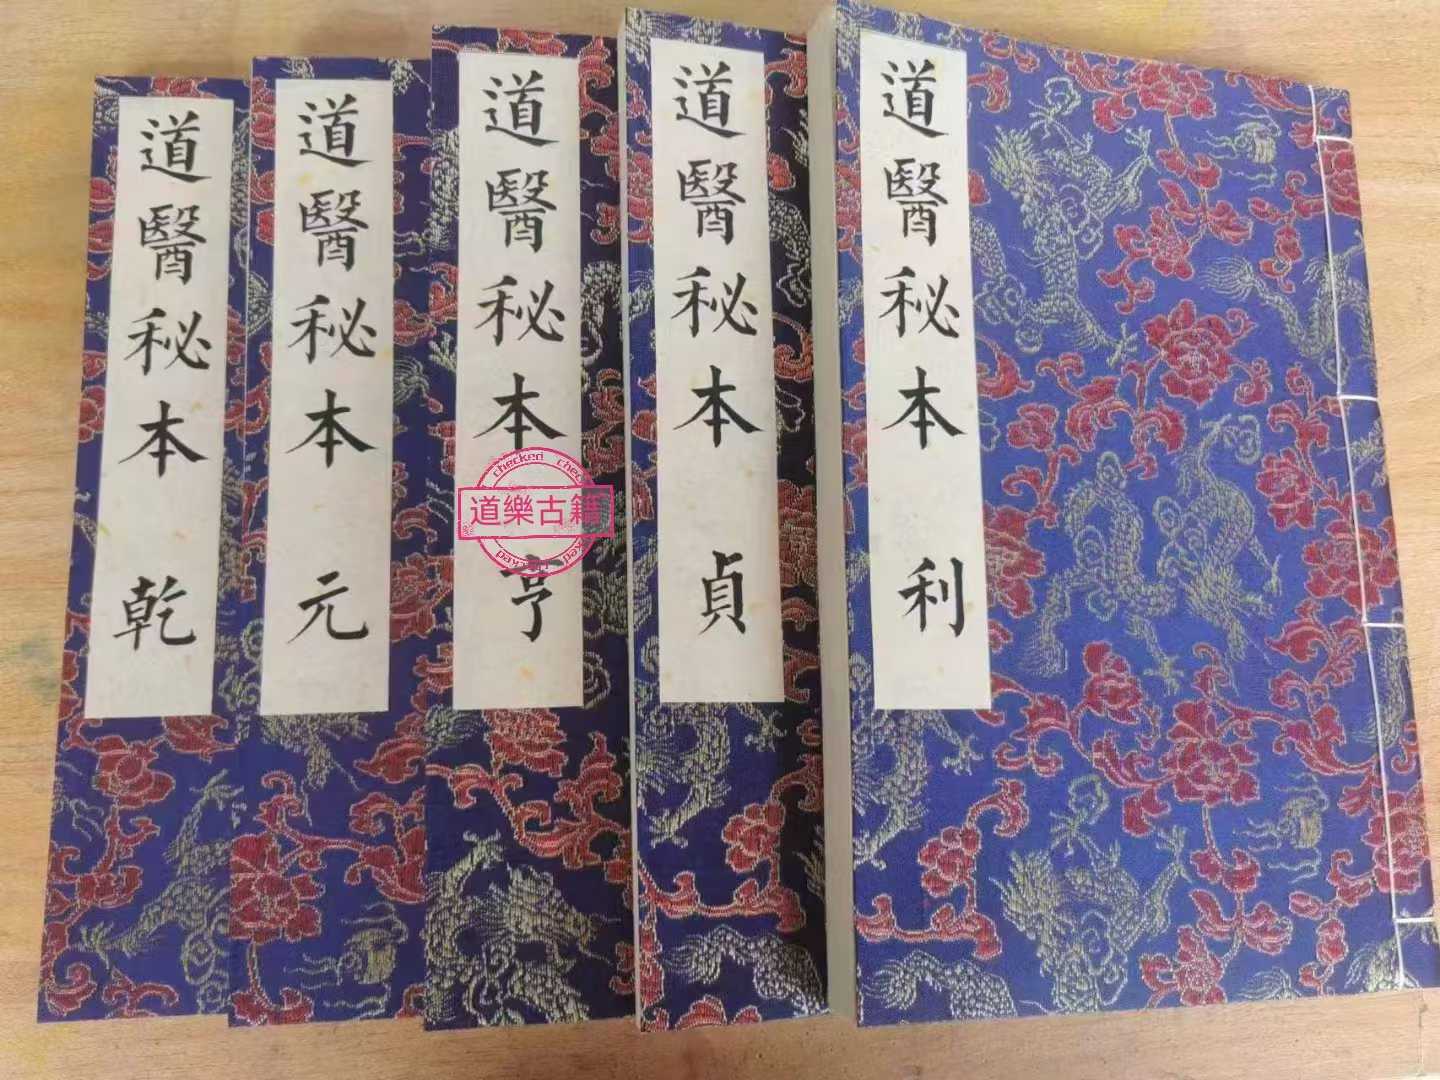 道醫秘本 乾
道醫秘本 元
道醫秘本 亨
道醫秘本 貞
道醫秘本 利
checked
道樂古籍
checked